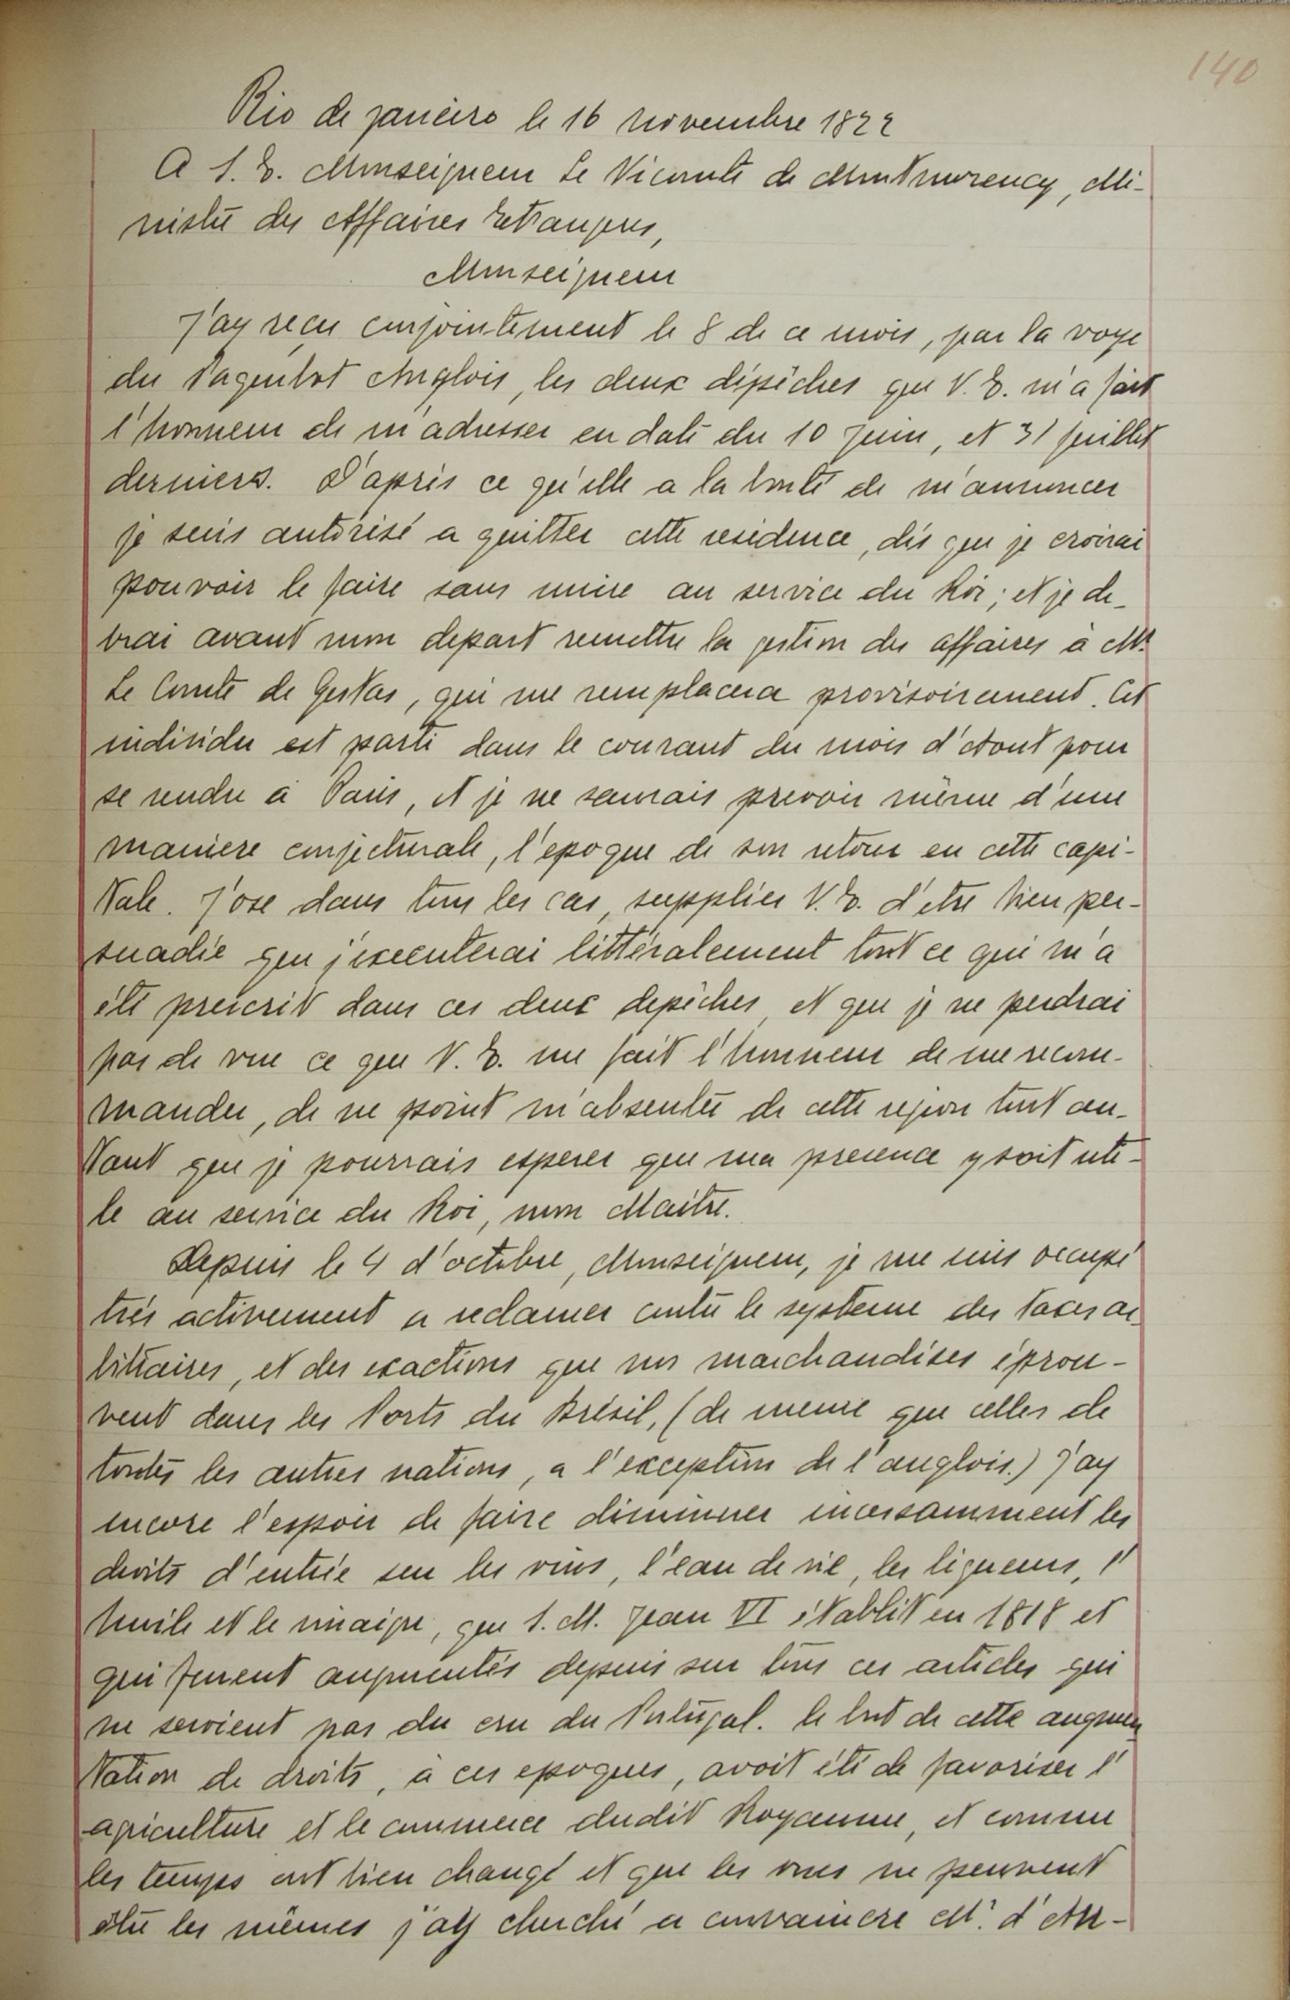 140
Rio de janeiro le 16 novembre 1822
A S. E. Monseigneur Le Vicomte de Montmorency, Mi-
nistre des Affaires Etrangeres,
Monseigneur
J'ay reçu conjointement le 8 de ce mois, par la voye
du Paquebot Anglois, les deux dépêches que V. E. m'a fait
l'honneur de m'adresser en date du 10 Juin, et 31 Juillet
derniers. D'après ce qu'elle a la bonté de m'annoncer
je suis autorisé a quitter cette residence, dés que je croirai
pouvoir le faire sans nuire au service du Roi; et je de-
vrai avant mon depart remettre la gestion des affaires à Mr.
Le Comte de Gestas, qui me remplacera provisoirement. Cet
individu est parti dans le courant du mois d'Aout pour
se rendre à Paris, et je ne saurais prevoir même d'une
maniere conjecturale, l'epoque de son retour en cette capi-
tale. J'ose dans tous les cas, supplier V. E. d'etre bien per-
suadée que j'executerai littéralement tout ce qui m'a
été prescrit dans ces deux depêches, et que je ne perdrai
pas de vue ce que V. E. me fait l'honneur de me recom-
mander, de ne point m'absenter de cette region tout au-
tant que je pourrais esperer que ma presence y soit uti-
le au service du Roi, mon Maitre.
Depuis le 4 d'octobre, Monseigneur, je me suis occupé
très activement a reclamer contre le systeme des taxes ar-
bitraires, et des exactions que nos marchandises éprou-
vent dans les Ports du Brésil, (de meme que celles de
toutes les autres nations, a l'exception de l'anglois.) J'ay
encore l'espoir de faire diminuer incessamment les
droits d'entrée sur les vins, l'eau de vie, les liqueurs, l'
huile et le vinaigre, que S. M. Jean VI établit en 1818 et
qui furent augmentés depuis sur tous ces articles qui
ne seroient pas du cru du Portugal. le but de cette augmen
tation de droits, à ces epoques, avoit été de favoriser l'
agriculture et le commerce dudit Royaume, et comme
les temps ont bien changé et que les vues ne peuvent
être les mêmes j'ay cherché a convaincre Mr. d'An-